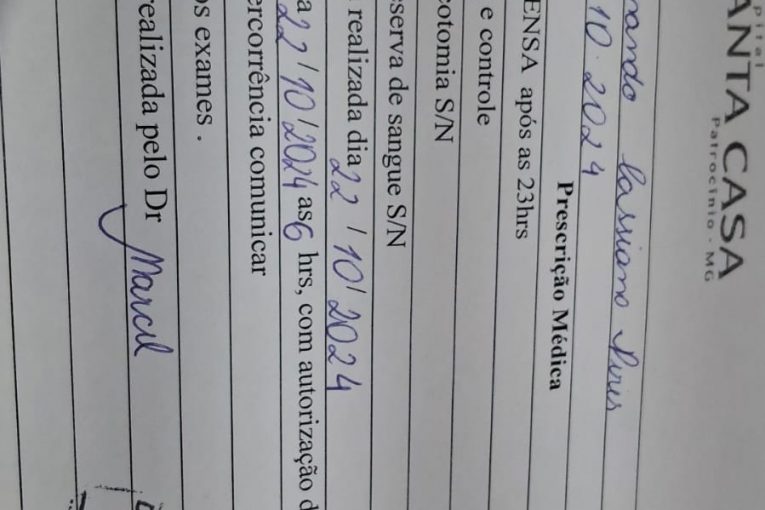 pital
ANTA CASA
Patrocínio - MG
ando Cassiano Pires
10. 2024
Prescrição Médica
ENSA após as 23hrs
e controle
cotomia S/N
serva de sangue S/N
realizada dia 22/10/2024
a 22/10/2024 as 6 hrs, com autorização d
ercorrência comunicar
os exames .
realizada pelo Dr Marcel